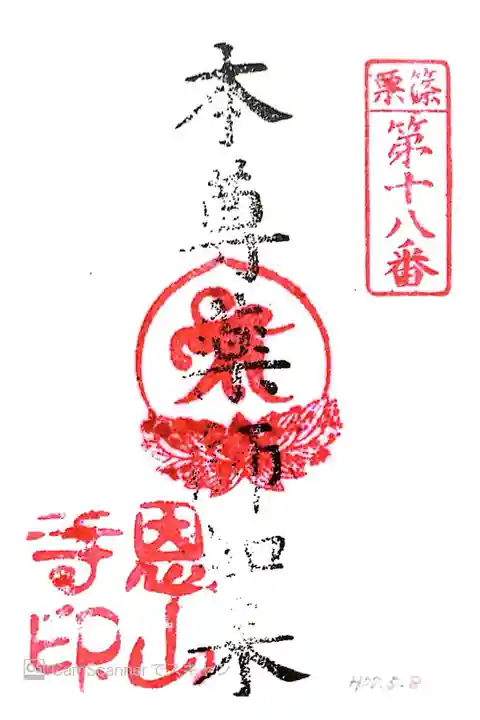 篠栗
第十八番
本尊薬師如来
恩山
寺印
CamScanner でスキャン
H20.5.8